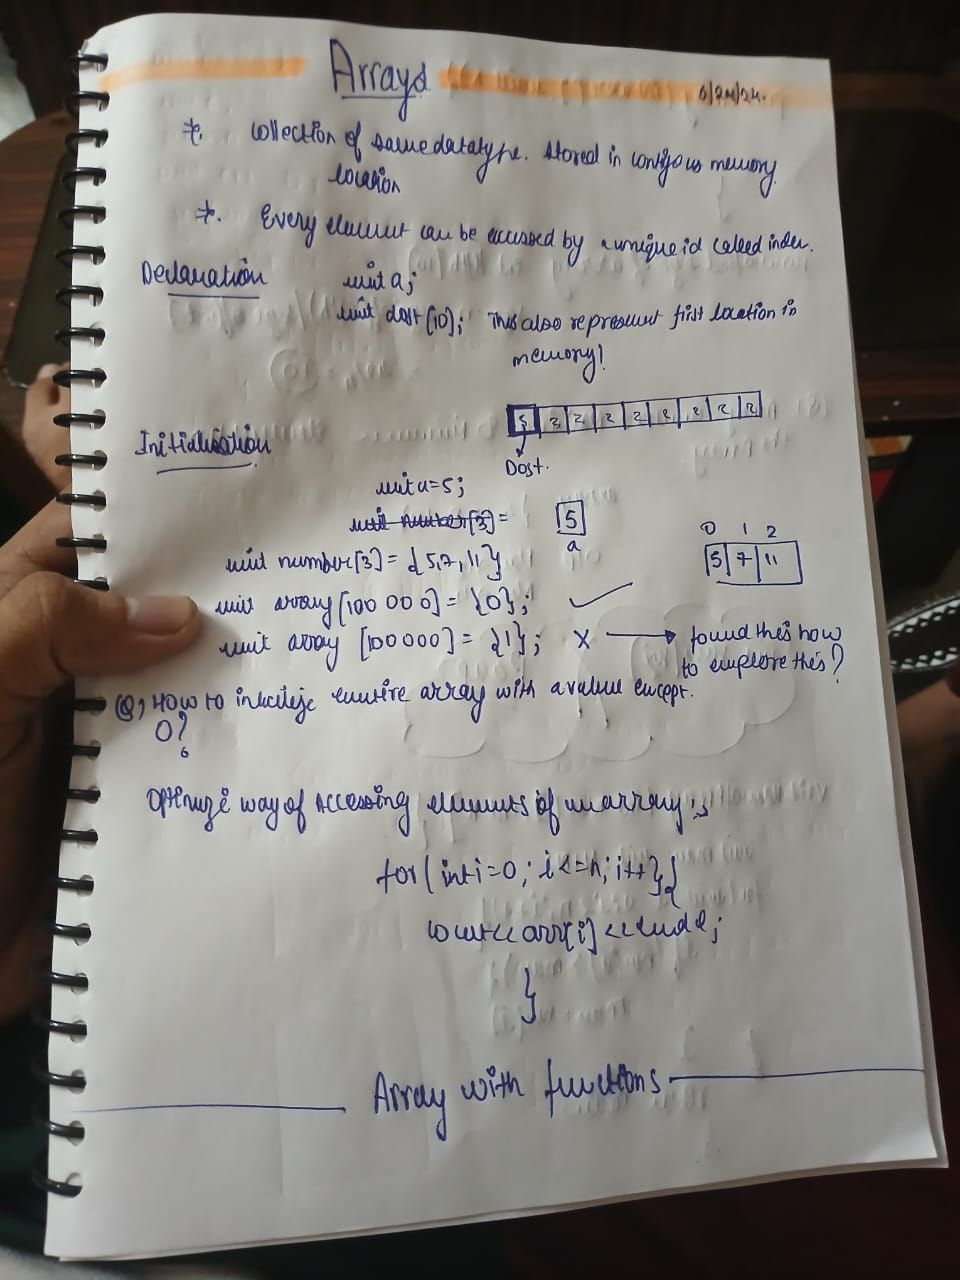 Arrays
*. Collection of same datatype. Stored in contigous memory
location
*. Every element can be accessed by a unique id called index.
Declaration
int a;
int dost[10]; This also represent first location in
memory!
Initialisation
Dost.
int a=5;
int number[3]=
5
a
0 1 2
5 7 11
int number[3]={5,7,11}
int array[100 000]={0};
int array [100000]={1}; X → found this how
to explore this?
Q, How to initilize entire array with a value except.
0?
Optimize way of Accessing elements of an array:
for(int i=0; i<=n; i++){
cout<<arr[i]<<endl;
}
Array with functions